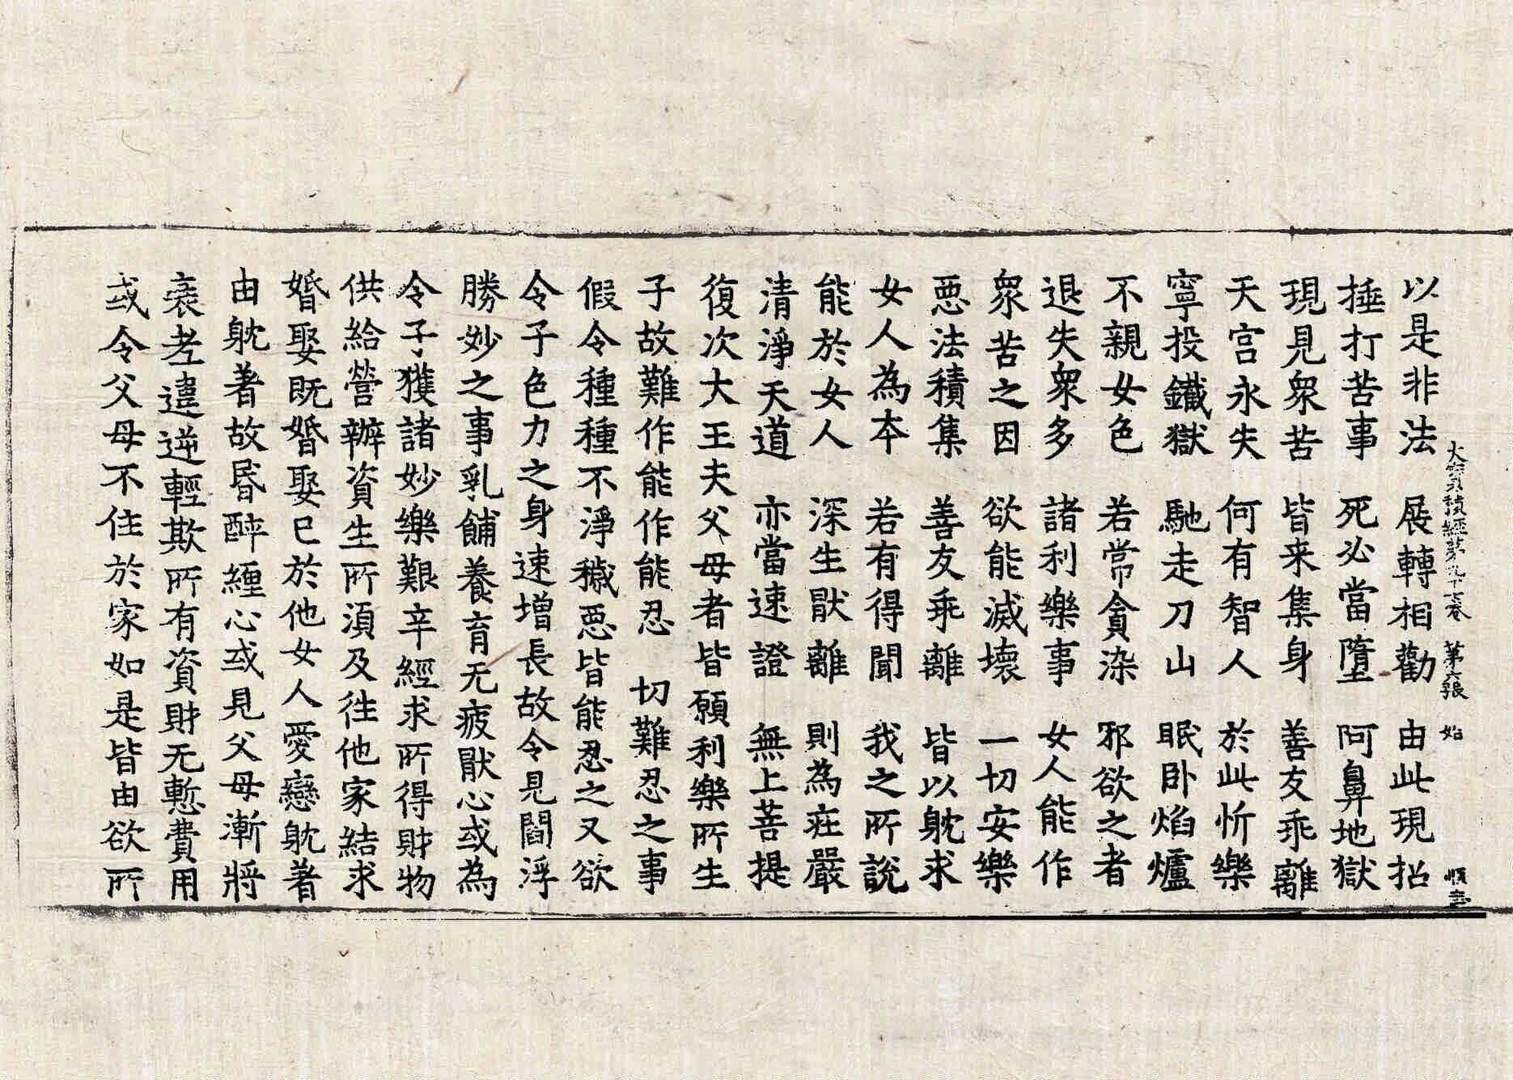 大寳積經第九十七卷 第六張 始
以是非法 展轉相勸 由此現招
捶打苦事 死必當墮 阿鼻地獄
現見衆苦 皆来集身 善友乖離
天宮永失 何有智人 於此忻樂
寧投鐵獄 馳走刀山 眠卧焰爐
不親女色 若常貪染 邪欲之者
退失衆多 諸利樂事 女人能作
衆苦之因 欲能滅壞 一切安樂
惡法積集 善友乖離 皆以躭求
女人為本 若有得聞 我之所說
能於女人 深生猒離 則為莊嚴
清淨天道 亦當速證 無上菩提
復次大王夫父母者皆願利樂所生
子故難作能作能忍 切難忍之事
假令種種不淨穢惡皆能忍之又欲
令子色力之身速增長故令見閻浮
勝妙之事乳餔養育无疲猒心或為
令子獲諸妙樂艱辛經求所得財物
供給營辦資生所須及往他家結求
婚娶既婚娶已於他女人愛戀躭著
由躭著故昏醉纏心或見父母漸將
衰老違逆輕欺所有資財无慙費用
或令父母不住於家如是皆由欲所